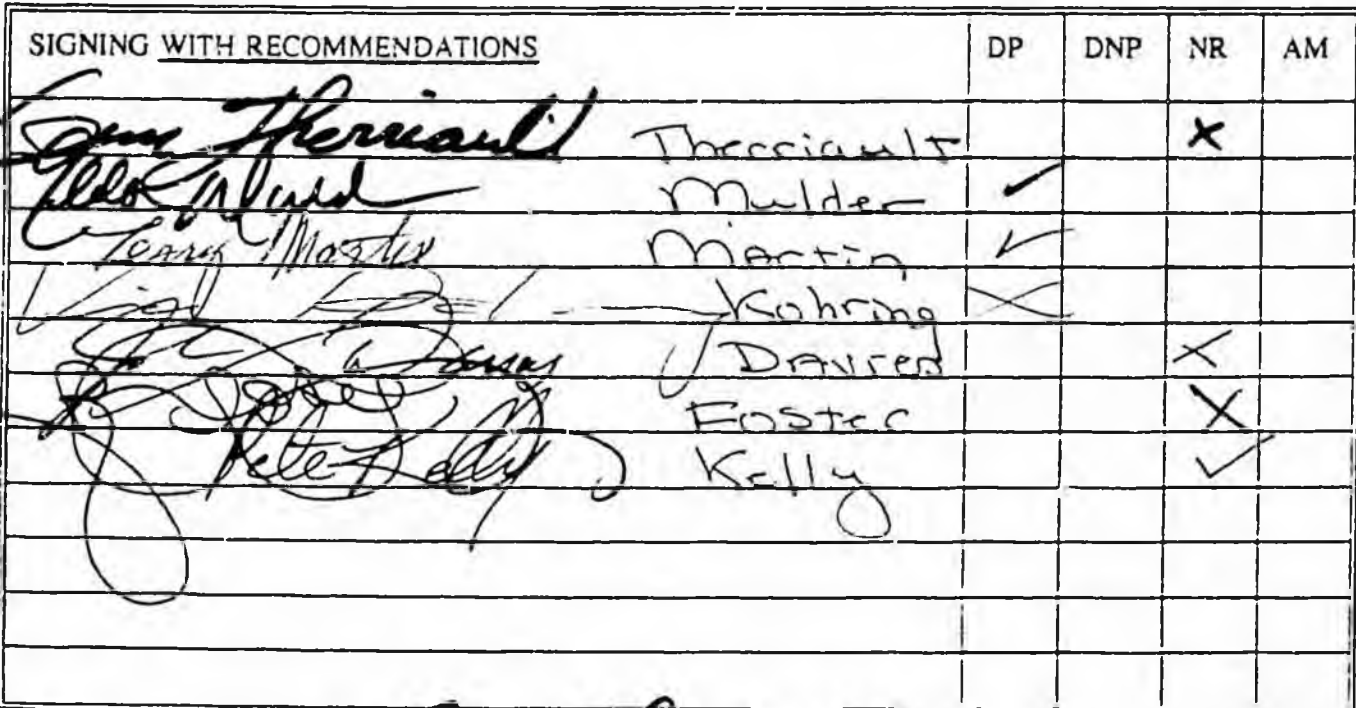 SIGNING WITH RECOMMENDATIONS DP DNP NR AM
Therriault Therriault x
Mulder ✓
Terry Martin Martin ✓
Kohring X
Davies X
Foster X
Pete Kelly Kelly ✓